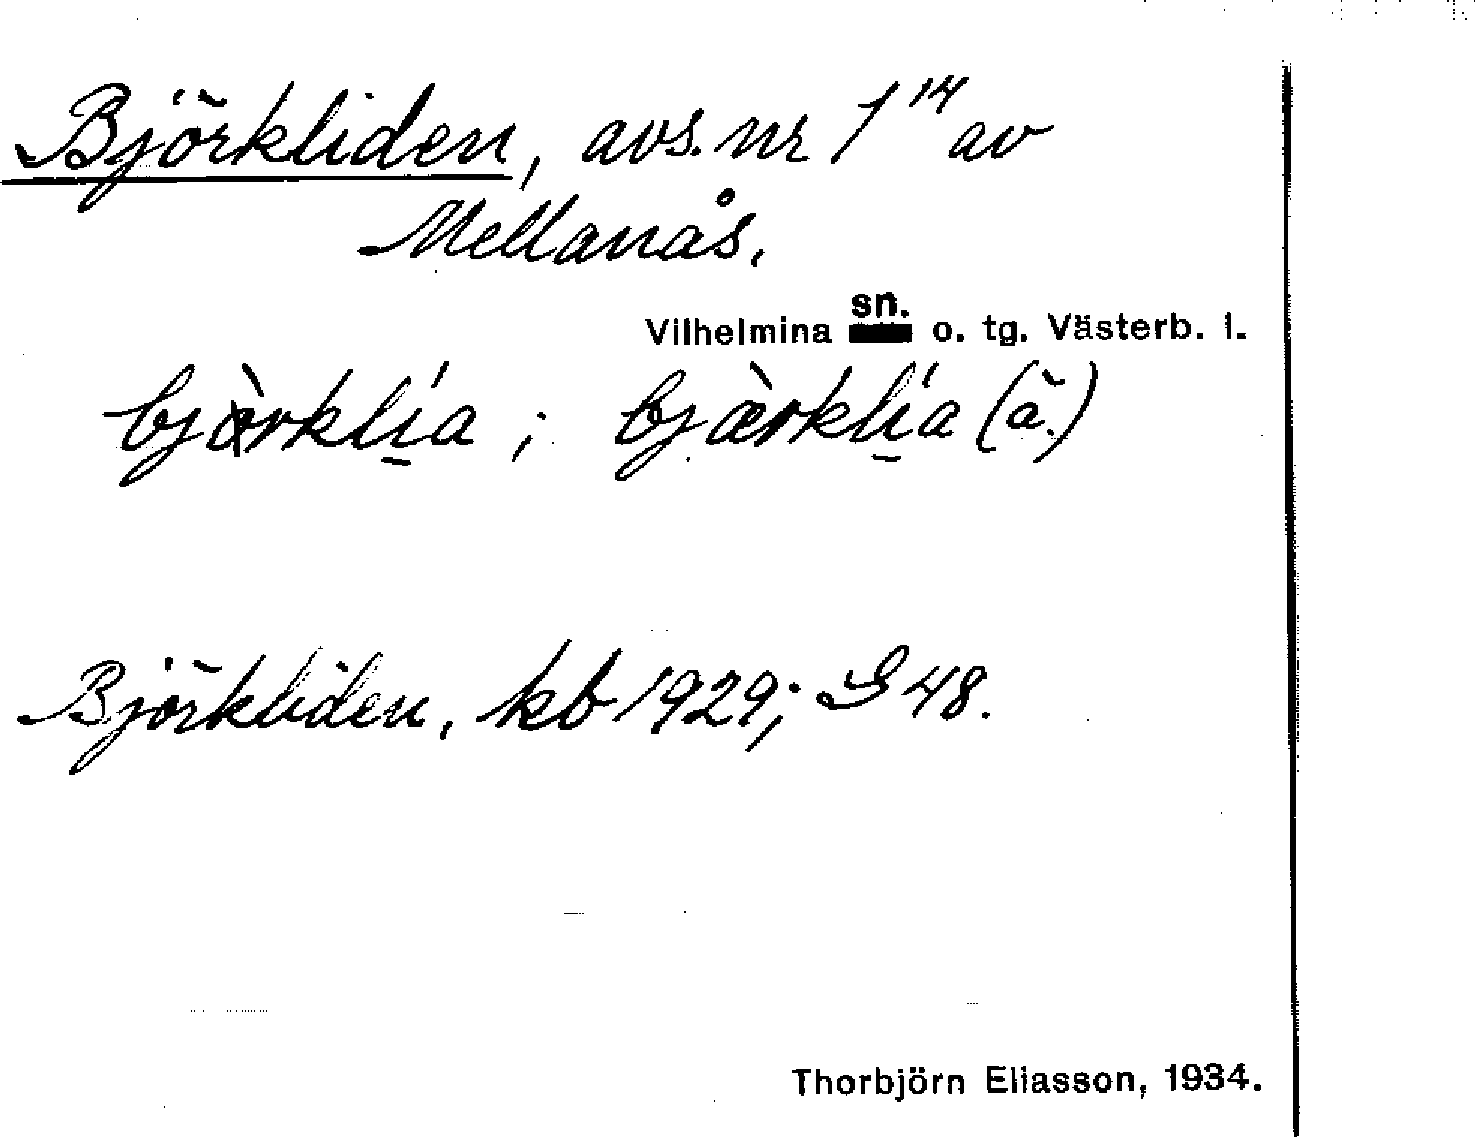 Björkliden, avs. nr 1¹⁴ av
Mellanås.
Vilhelmina sn. o. tg. Västerb. l.
bjœ̀rklía ; bjæ̀rklía (ä.)
Björkliden, kb 1929; S 48.
Thorbjörn Eliasson, 1934.